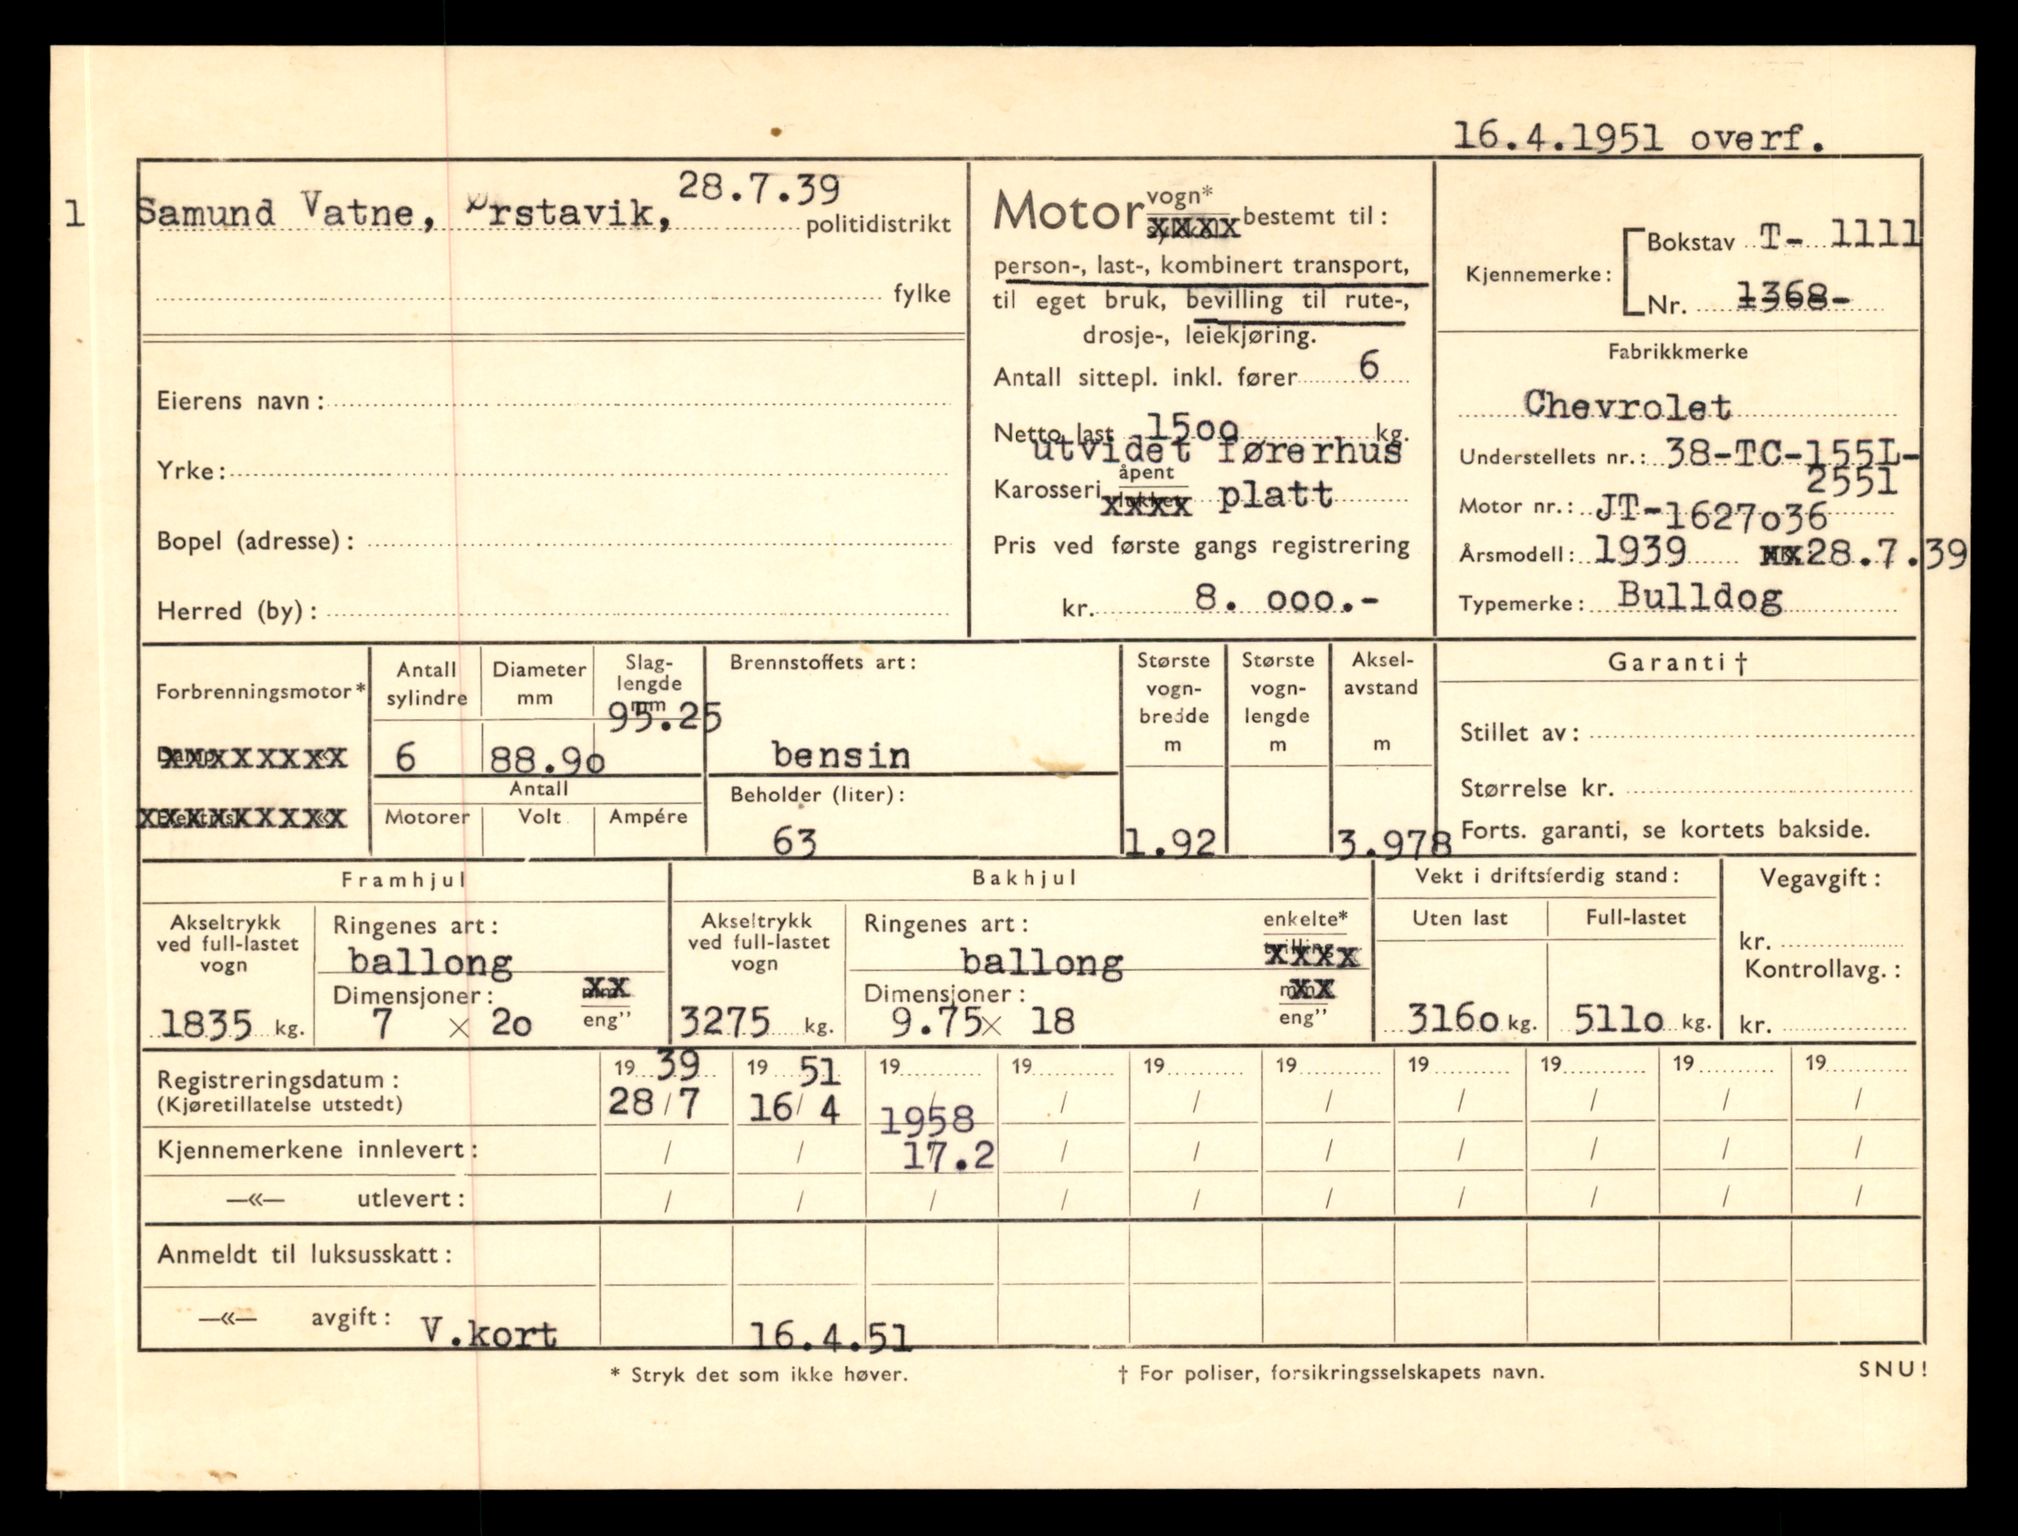 16.4.1951 overf.
1 Samund Vatne, Ørstavik, 28.7.39 politidistrikt
fylke
Eierens navn:
Yrke:
Bopel (adresse):
Herred (by):
Motor vogn* bestemt til:
person-, last-, kombinert transport,
til eget bruk, bevilling til rute-,
drosje-, leiekjøring.
Antall sittepl. inkl. fører 6
Netto last 15oo kg.
utvidet førerhus
Karosseri åpent platt
Pris ved første gangs registrering
kr. 8. ooo.-
Kjennemerke: Bokstav T- 1111
Nr. 1368-
Fabrikkmerke
Chevrolet
Understellets nr.: 38-TC-155L-
2551
Motor nr.: JT-1627o36
Årsmodell: 1939 xx28.7.39
Typemerke: Bulldog
Forbrenningsmotor*
Damp xxxxxxxx «
xxxxxxxxx «
Antall sylindre
6
Diameter mm
88.9o
Slag-
lengde
mm
95.25
Antall
Motorer Volt Ampére
Brennstoffets art:
bensin
Beholder (liter):
63
Største vogn-bredde m
1.92
Største vogn-lengde m
Aksel-avstand m
3.978
Garanti †
Stillet av:
Størrelse kr.
Forts. garanti, se kortets bakside.
Framhjul
Akseltrykk
ved full-lastet
vogn
1835 kg.
Ringenes art:
ballong
Dimensjoner: xx
7 × 2o eng"
Bakhjul
Akseltrykk
ved full-lastet
vogn
3275 kg.
Ringenes art: enkelte*
ballong xxxx
Dimensjoner: xx
9.75 × 18 eng"
Vekt i driftsferdig stand:
Uten last Full-lastet
316o kg. 511o kg.
Vegavgift:
kr.
Kontrollavg.:
kr.
19 39 19 51 19 19 19 19 19 19 19 19
Registreringsdatum:
(Kjøretillatelse utstedt) 28/7 16/4 / / / / / / / /
1958
Kjennemerkene innlevert: / / 17.2 / / / / / / /
—«— utlevert: / / / / / / / / / /
Anmeldt til luksusskatt:
—«— avgift: V.kort 16.4.51
* Stryk det som ikke høver. † For poliser, forsikringsselskapets navn. SNU!